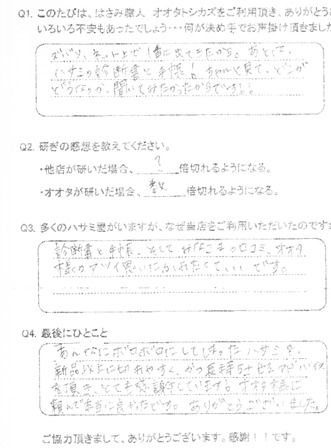 Q1. このたびは、はさみ職人 オオタトシカズをご利用頂き、ありがとう
いろいろ不安もあったでしょう・・・何が決め手でお声掛け頂きました
ズバリ、ネット上で1番に出てきたから。あとは、
ハサミの診断書と手様! ちゃんと見て、どこが
どうなのか、聞いてみたかったからです!!
Q2. 研ぎの感想を教えてください。
・他店が研いだ場合、 ? 倍切れるようになる。
・オオタが研いだ場合、 倍切れるようになる。
Q3. 多くのハサミ屋がいますが、なぜ当店をご利用いただいたのですか
診断書と手様、そしてみなさまの口コミ、オオタ
様のアツイ思いにひかれたくてぃぃです。
Q4. 最後にひとこと
あんなにボロボロにしてしまったハサミを、
新品以上に切れやすく、かつ長持ちさせるアドバイス
を頂き、とても感謝しています! オオタ様に
頼んで本当に良かったです。ありがとうございました。
ご協力頂きまして、ありがとうございます。感謝!!です。